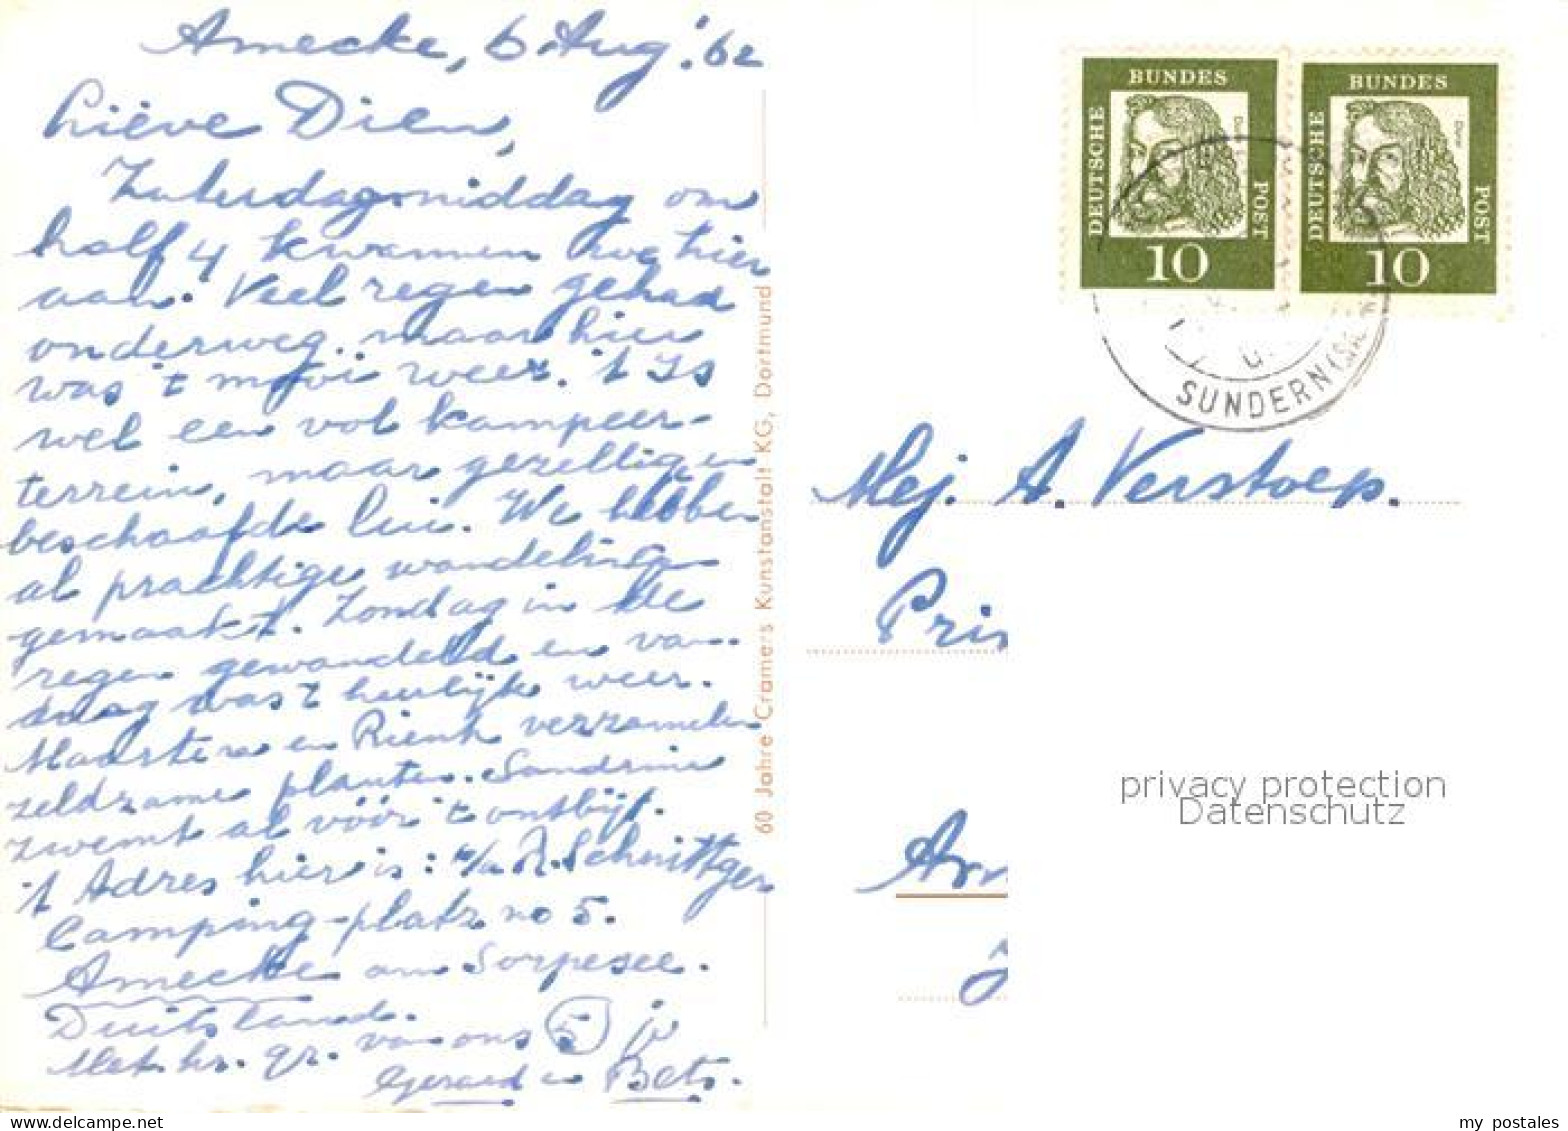 Amecke, 6 Aug. '62
Liève Dien,
Zaterdagmiddag om
half 4 kwamen we hier
aan. Veel regen gehad
onderweg, maar hier
was 't mooi weer. 't Is
wel een vol kampeer-
terrein, maar gezellig en
beschaafde lui. We hebben
al prachtige wandelingen
gemaakt. Zondag in de
regen gewandeld en van-
daag was 't heerlijk weer.
Maarten en Rienk verzamelen
zeldzame planten. Sandrine
zwemt al vóór 't ontbijt.
't Adres hier is: c/o A. Schmittger
Camping-platz no 5.
Amecke am Sorpesee.
Duitsland.
Met hr. gr. van ons 5 je
Gerard en Bets.
60 Jahre Cramers Kunstanstalt KG, Dortmund
DEUTSCHE BUNDES POST
10
DEUTSCHE BUNDES POST
10
SUNDERN (SAUERL
Mej. A. Verstoep.
Prin
Arn
privacy protection
Datenschutz
my postales